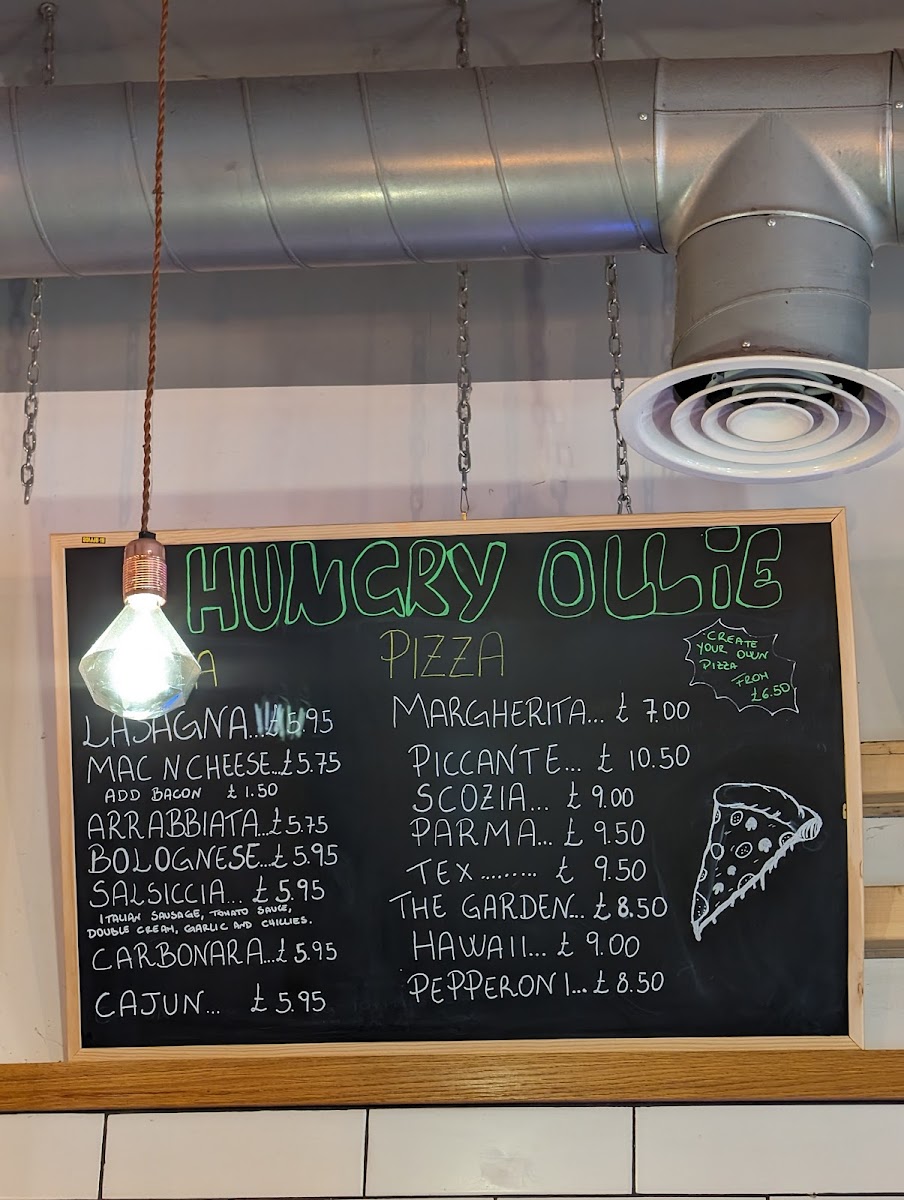 HUNGRY OLLiE
PIZZA
CREATE
YOUR OWN
PIZZA
FROM
£6.50
LASAGNA...£5.95
MAC N CHEESE...£5.75
ADD BACON £1.50
ARRABBIATA...£5.75
BOLOGNESE...£5.95
SALSICCIA... £5.95
ITALIAN SAUSAGE, TOMATO SAUCE,
DOUBLE CREAM, GARLIC AND CHILLIES.
CARBONARA...£5.95
CAJUN... £5.95
MARGHERITA... £7.00
PICCANTE... £10.50
SCOZIA... £9.00
PARMA... £9.50
TEX ......... £9.50
THE GARDEN... £8.50
HAWAII... £9.00
PEPPERONI... £8.50